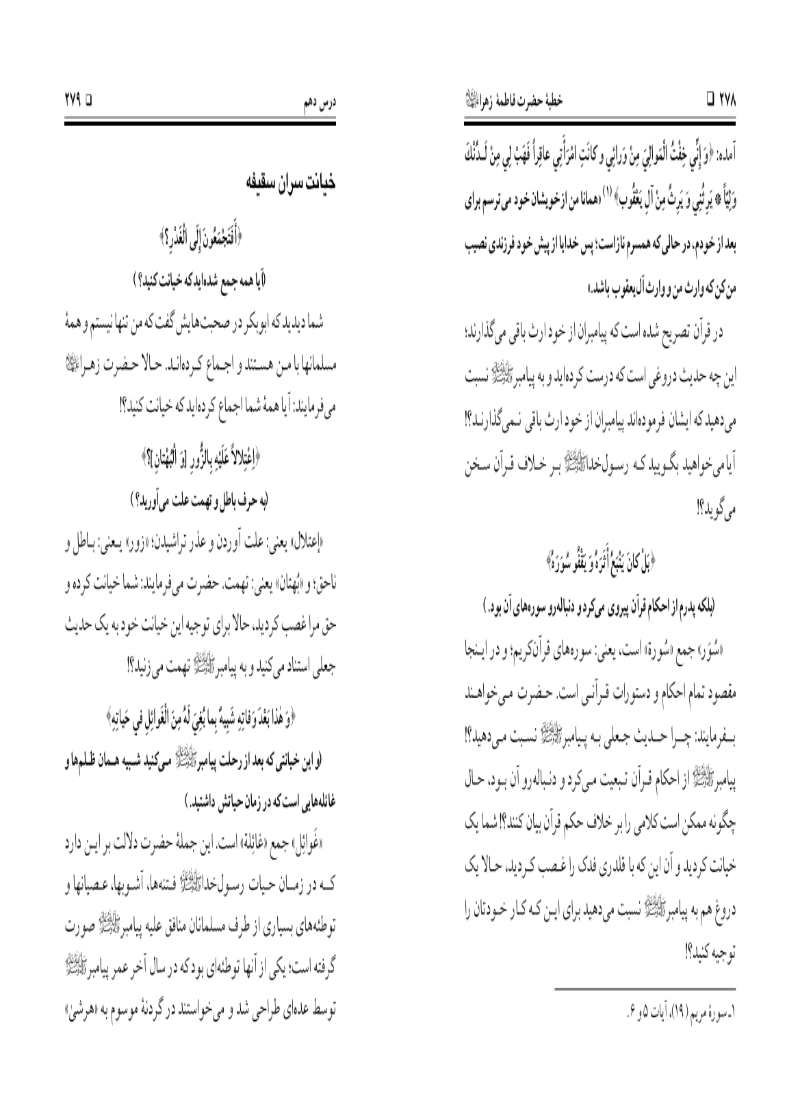 ۲۷۸ ❑ خطبهٔ حضرت فاطمهٔ زهرا
آمده: ﴿وَ إِنِّي خِفْتُ الْمَوالِيَ مِنْ وَرائِي و كانَتِ امْرَأَتِي عاقِراً فَهَبْ لِي مِنْ لَـدُنْكَ
وَلِيّاً * يَرِثُنِي وَ يَرِثُ مِنْ آلِ يَعْقُوب﴾(۱) «همانا من از خویشان خود می‌ترسم برای
بعد از خودم، در حالی که همسرم نازاست؛ پس خدایا از پیش خود فرزندی نصیب
من کن که وارث من و وارث آل‌یعقوب باشد.»
در قرآن تصریح شده است که پیامبران از خود ارث باقی می‌گذارند؛
این چه حدیث دروغی است که درست کرده‌اید و به پیامبرﷺ نسبت
می‌دهید که ایشان فرموده‌اند پیامبران از خود ارث باقی نـمی‌گذارنـد؟!
آیا می‌خواهید بگـویید کـه رسـول‌خداﷺ بـر خـلاف قـرآن سـخن
می‌گوید؟!
﴿بَلْ كانَ يَتْبَعُ أَثَرَهُ وَ يَقْفُو سُوَرَهُ﴾
(بلکه پدرم از احکام قرآن پیروی می‌کرد و دنباله‌رو سوره‌های آن بود.)
«سُوَر» جمع «سُورة» است، یعنی: سوره‌های قرآن‌کریم؛ و در ایـنجا
مقصود تمام احکام و دستورات قـرآنـی است. حـضرت مـی‌خواهـند
بـفرمایند: چـرا حـدیث جـعلی بـه پـیامبرﷺ نسـبت مـی‌دهید؟!
پیامبرﷺ از احکام قـرآن تـبعیت مـی‌کرد و دنـباله‌رو آن بـود، حـال
چگونه ممکن است کلامی را بر خلاف حکم قرآن بیان کنند؟! شما یک
خیانت کردید و آن این که با قلدری فدک را غـصب کـردید، حـالا یک
دروغ هم به پیامبرﷺ نسبت می‌دهید برای ایـن کـه کـار خـودتان را
توجیه کنید؟!
۱ـ سورهٔ مریم (۱۹)، آیات ۵ و ۶.
درس دهم ❑ ۲۷۹
خیانت سران سقیفه
﴿أَفَتَجْمَعُونَ إِلَى الْغَدْرِ؟﴾
(آیا همه جمع شده‌اید که خیانت کنید؟)
شما دیدید که ابوبکر در صحبت‌هایش گفت که من تنها نیستم و همهٔ
مسلمانها با مـن هسـتند و اجـماع کـرده‌انـد. حـالا حـضرت زهـرا
می‌فرمایند: آیا همهٔ شما اجماع کرده‌اید که خیانت کنید؟!
﴿اِعْتِلالاً عَلَيْهِ بِالزُّورِ [وَ الْبُهْتانِ]؟﴾
(به حرف باطل و تهمت علت می‌آورید؟)
«إعتلال» یعنی: علت آوردن و عذر تراشیدن؛ «زور» یـعنی: بـاطل و
ناحق؛ و «بُهتان» یعنی: تهمت. حضرت می‌فرمایند: شما خیانت کرده و
حق مرا غصب کردید، حالا برای توجیه این خیانت خود به یک حدیث
جعلی استناد می‌کنید و به پیامبرﷺ تهمت می زنید؟!
﴿وَ هٰذا بَعْدَ وَفاتِهِ شَبِيهٌ بِما بُغِيَ لَهُ مِنَ الْغَوائِلِ فِي حَياتِهِ﴾
(و این خیانتی که بعد از رحلت پیامبرﷺ مـی‌کنید شـبیه هـمان ظـلم‌ها و
غائله‌هایی است که در زمان حیاتش داشتید.)
«غَوائِل» جمع «غائِلة» است. این جملهٔ حضرت دلالت بر ایـن دارد
کـه در زمـان حیات رسـول‌خداﷺ فـتنه‌ها، آشـوبها، عـصیانها و
توطئه‌های بسیاری از طرف مسلمانان منافق علیه پیامبرﷺ صورت
گرفته است؛ یکی از آنها توطئه‌ای بود که در سال آخر عمر پیامبرﷺ
توسط عده‌ای طراحی شد و می‌خواستند در گردنهٔ موسوم به «هرشیٰ»